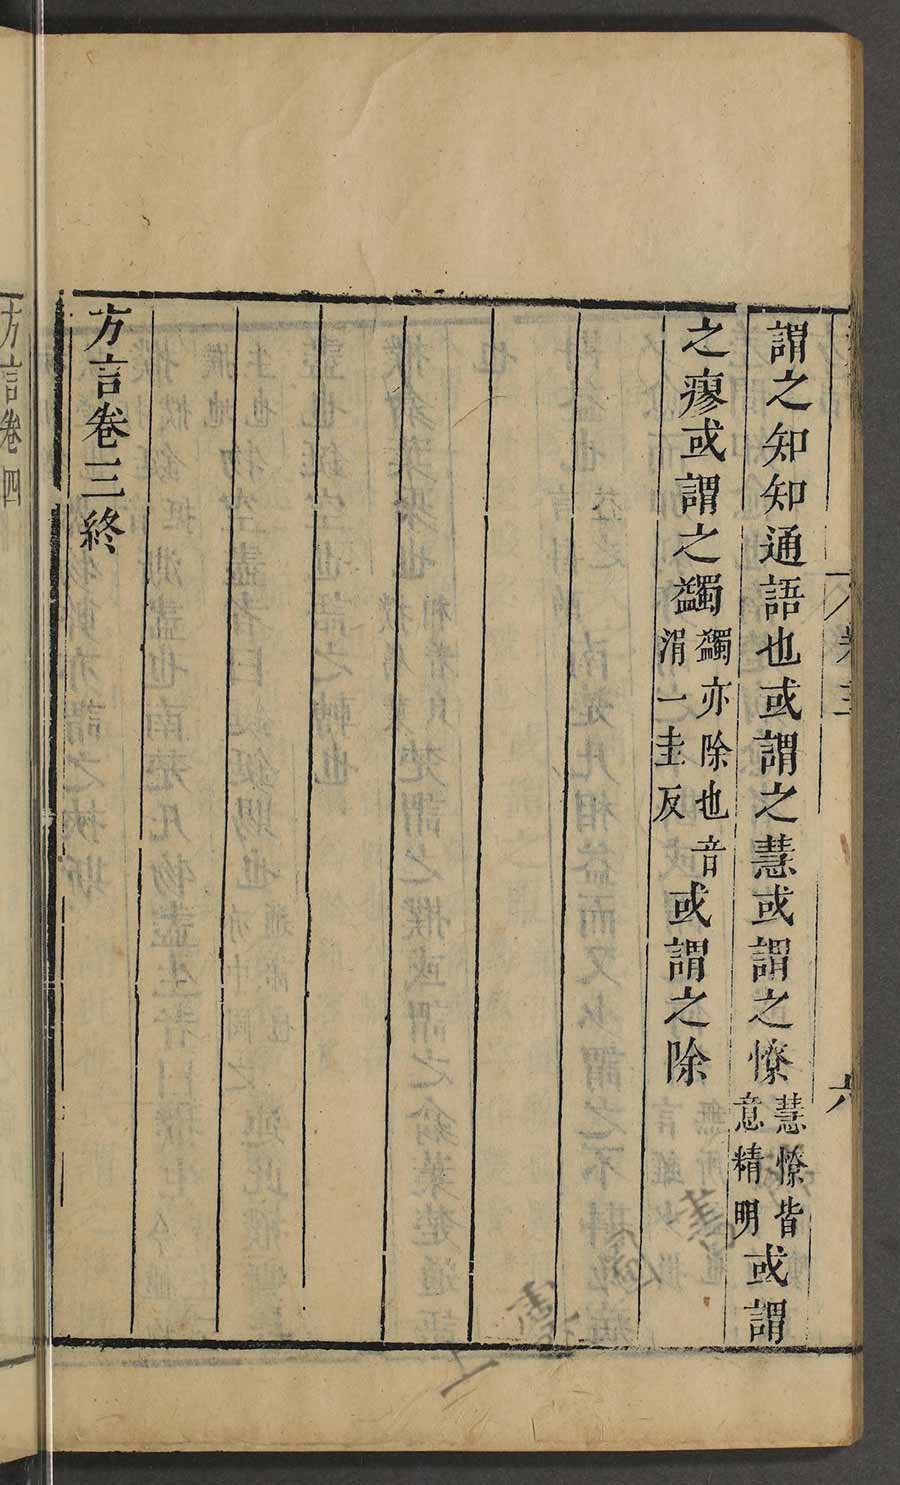 謂之知知通語也或謂之慧或謂之憭慧憭皆意精明或謂
之瘳或謂之蠲蠲亦除也音涓一圭反或謂之除
方言卷三終
方言卷四